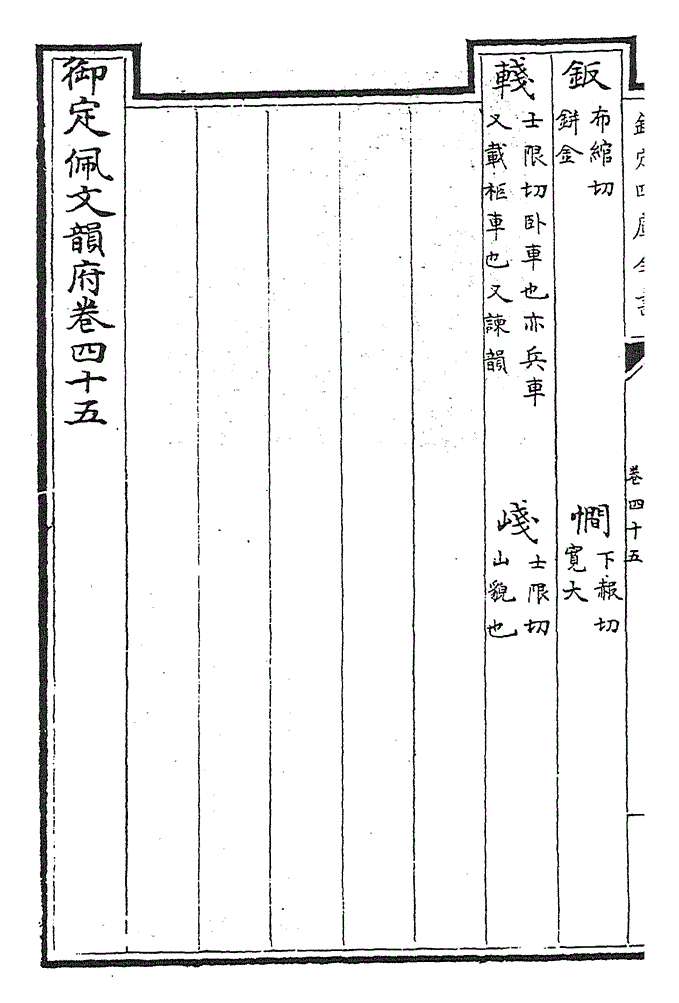 欽定四庫全書
卷四十五
鈑布綰切餠金
㦓下赧切寬大
輚士限切卧車也亦兵車又載柩車也又諫韻
嶘士限切山貌也
御定佩文韻府卷四十五